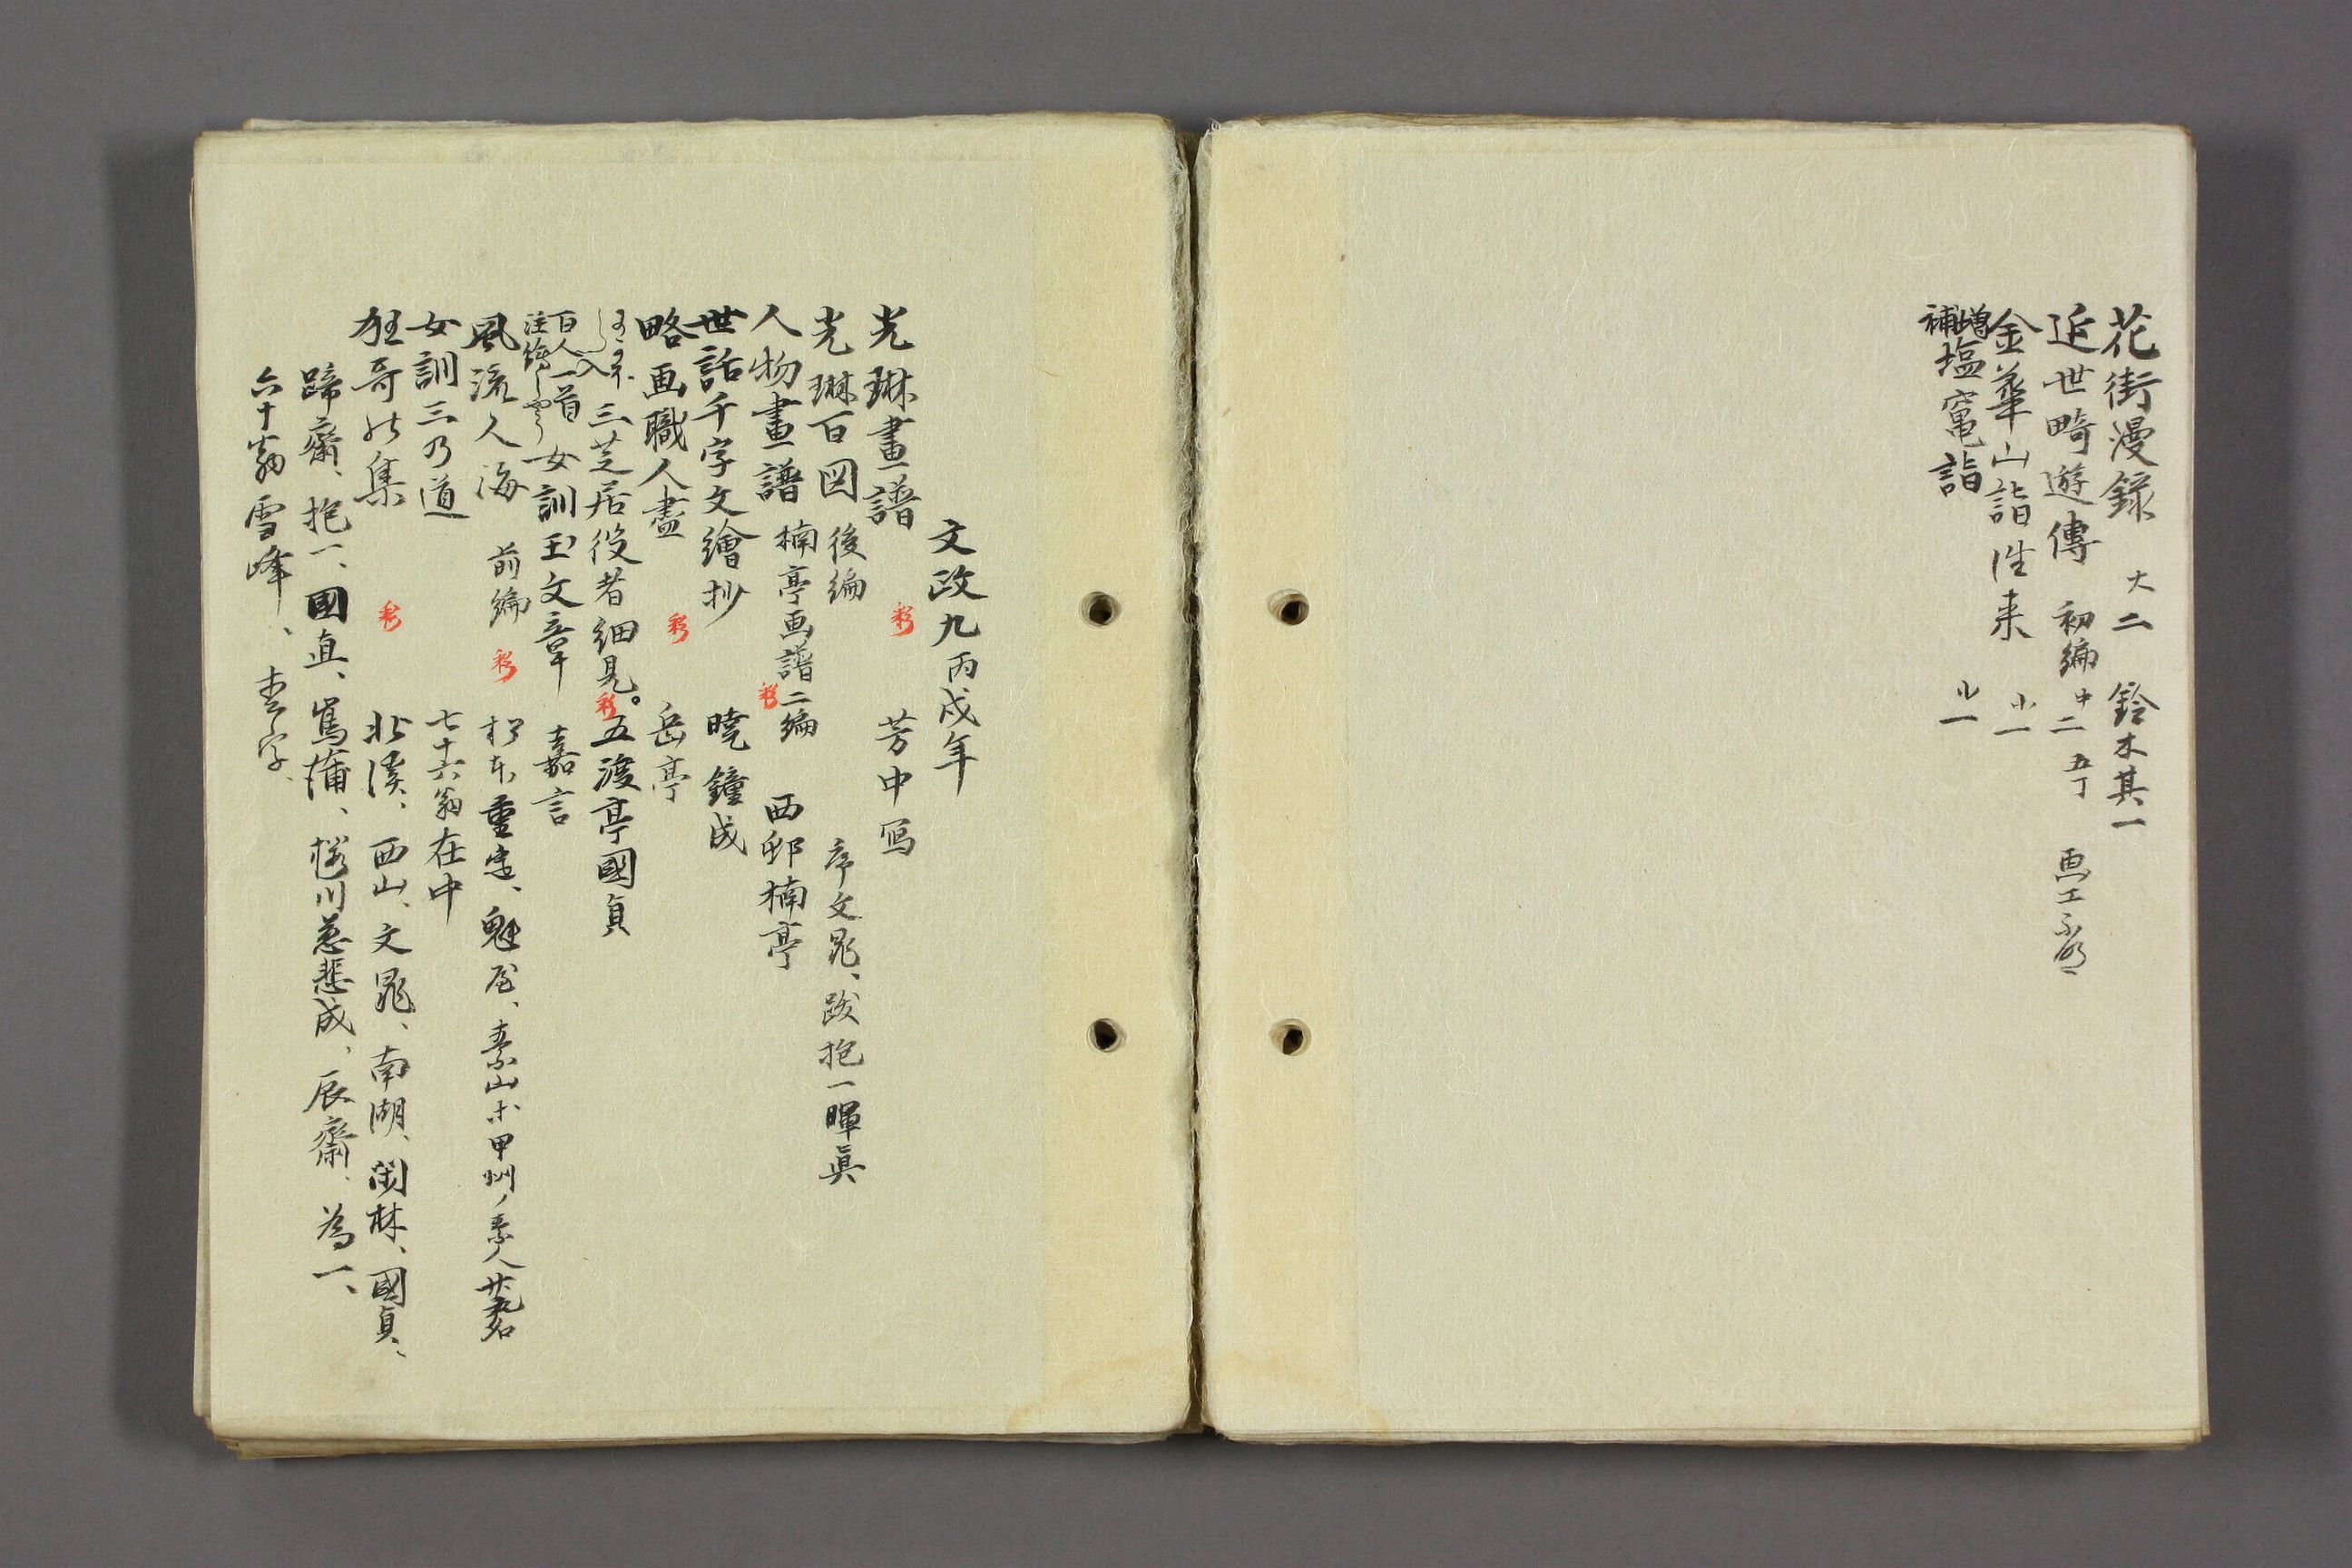 花街漫録 大二 鈴木其一
近世畸遊傳 初編 中二 五丁 画工不明
金華山詣往来 小一
増補塩竈詣 小一
文政九丙戌年
光琳畫譜 彩 芳中写
光琳百図 後編 序文晁、跋抱一暉真
人物畫譜 楠亭画譜二編 彩 西邨楠亭
世話千字文繪抄 暁鐘成
略画職人盡 彩 岳亭
三芝居役者細見。彩 五渡亭國貞
百人一首 女訓玉文章 嘉言
風流人海 前編 彩 重宣、魁屋、素山ホ甲州ノ素人
女訓三乃道 七十六翁在中
狂哥の集 彩 北溪、西山、文晁、南湖、閑林、國貞、
蹄齋、抱一、國直、嵩蒲、桜川慈悲成、辰齋、為一、
六十翁雪峰、